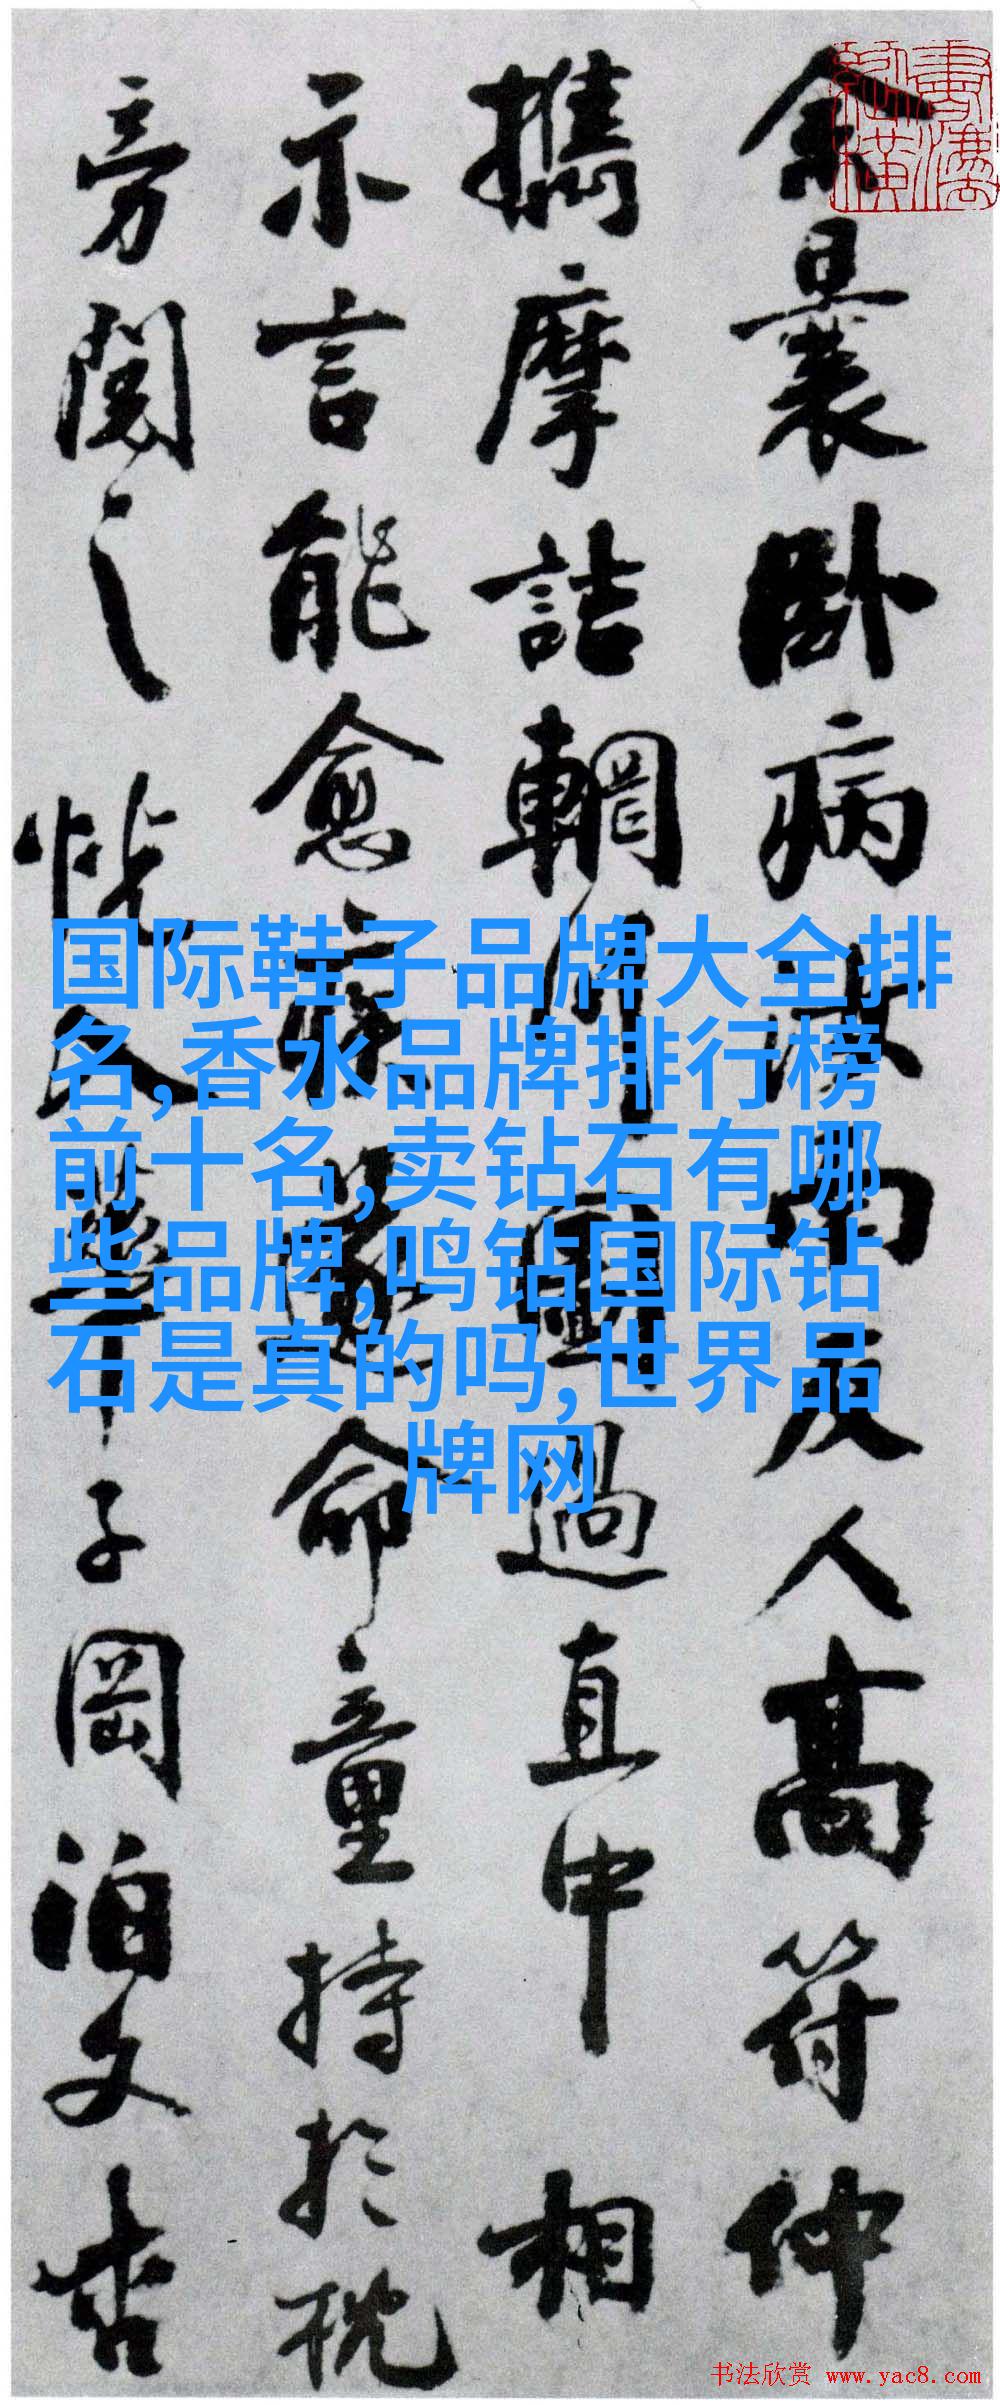 余曩卧病汝南友人高符仲
攜摩詰輞川圖過直中相
示言能愈疾遂命童持於枕
旁閱之恍入華子岡泊文杏
国际鞋子品牌大全排
名,香水品牌排行榜
前十名,卖钻石有哪
些品牌,鸣钻国际钻
石是真的吗,世界品
牌网
书法欣赏 www.yac8.com